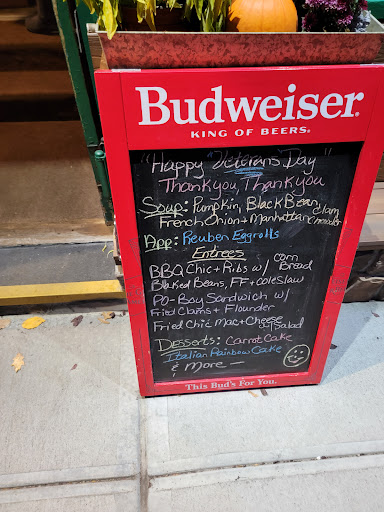 Budweiser
KING OF BEERS.
"Happy "Veterans Day"
Thank you, Thank you
Soup: Pumpkin, Black Bean,
French Onion + Manhattan Clam Chowder
App: Reuben Eggrolls
Entrees
BBQ Chic + Ribs w/ Corn Bread
Baked Beans, FF + coleslaw
PO-Boy Sandwich w/
Fried Clams + Flounder
Fried Chic Mac + Cheese
w/ Salad
Desserts: Carrot Cake
Italian Rainbow Cake
& More —
This Bud's For You.